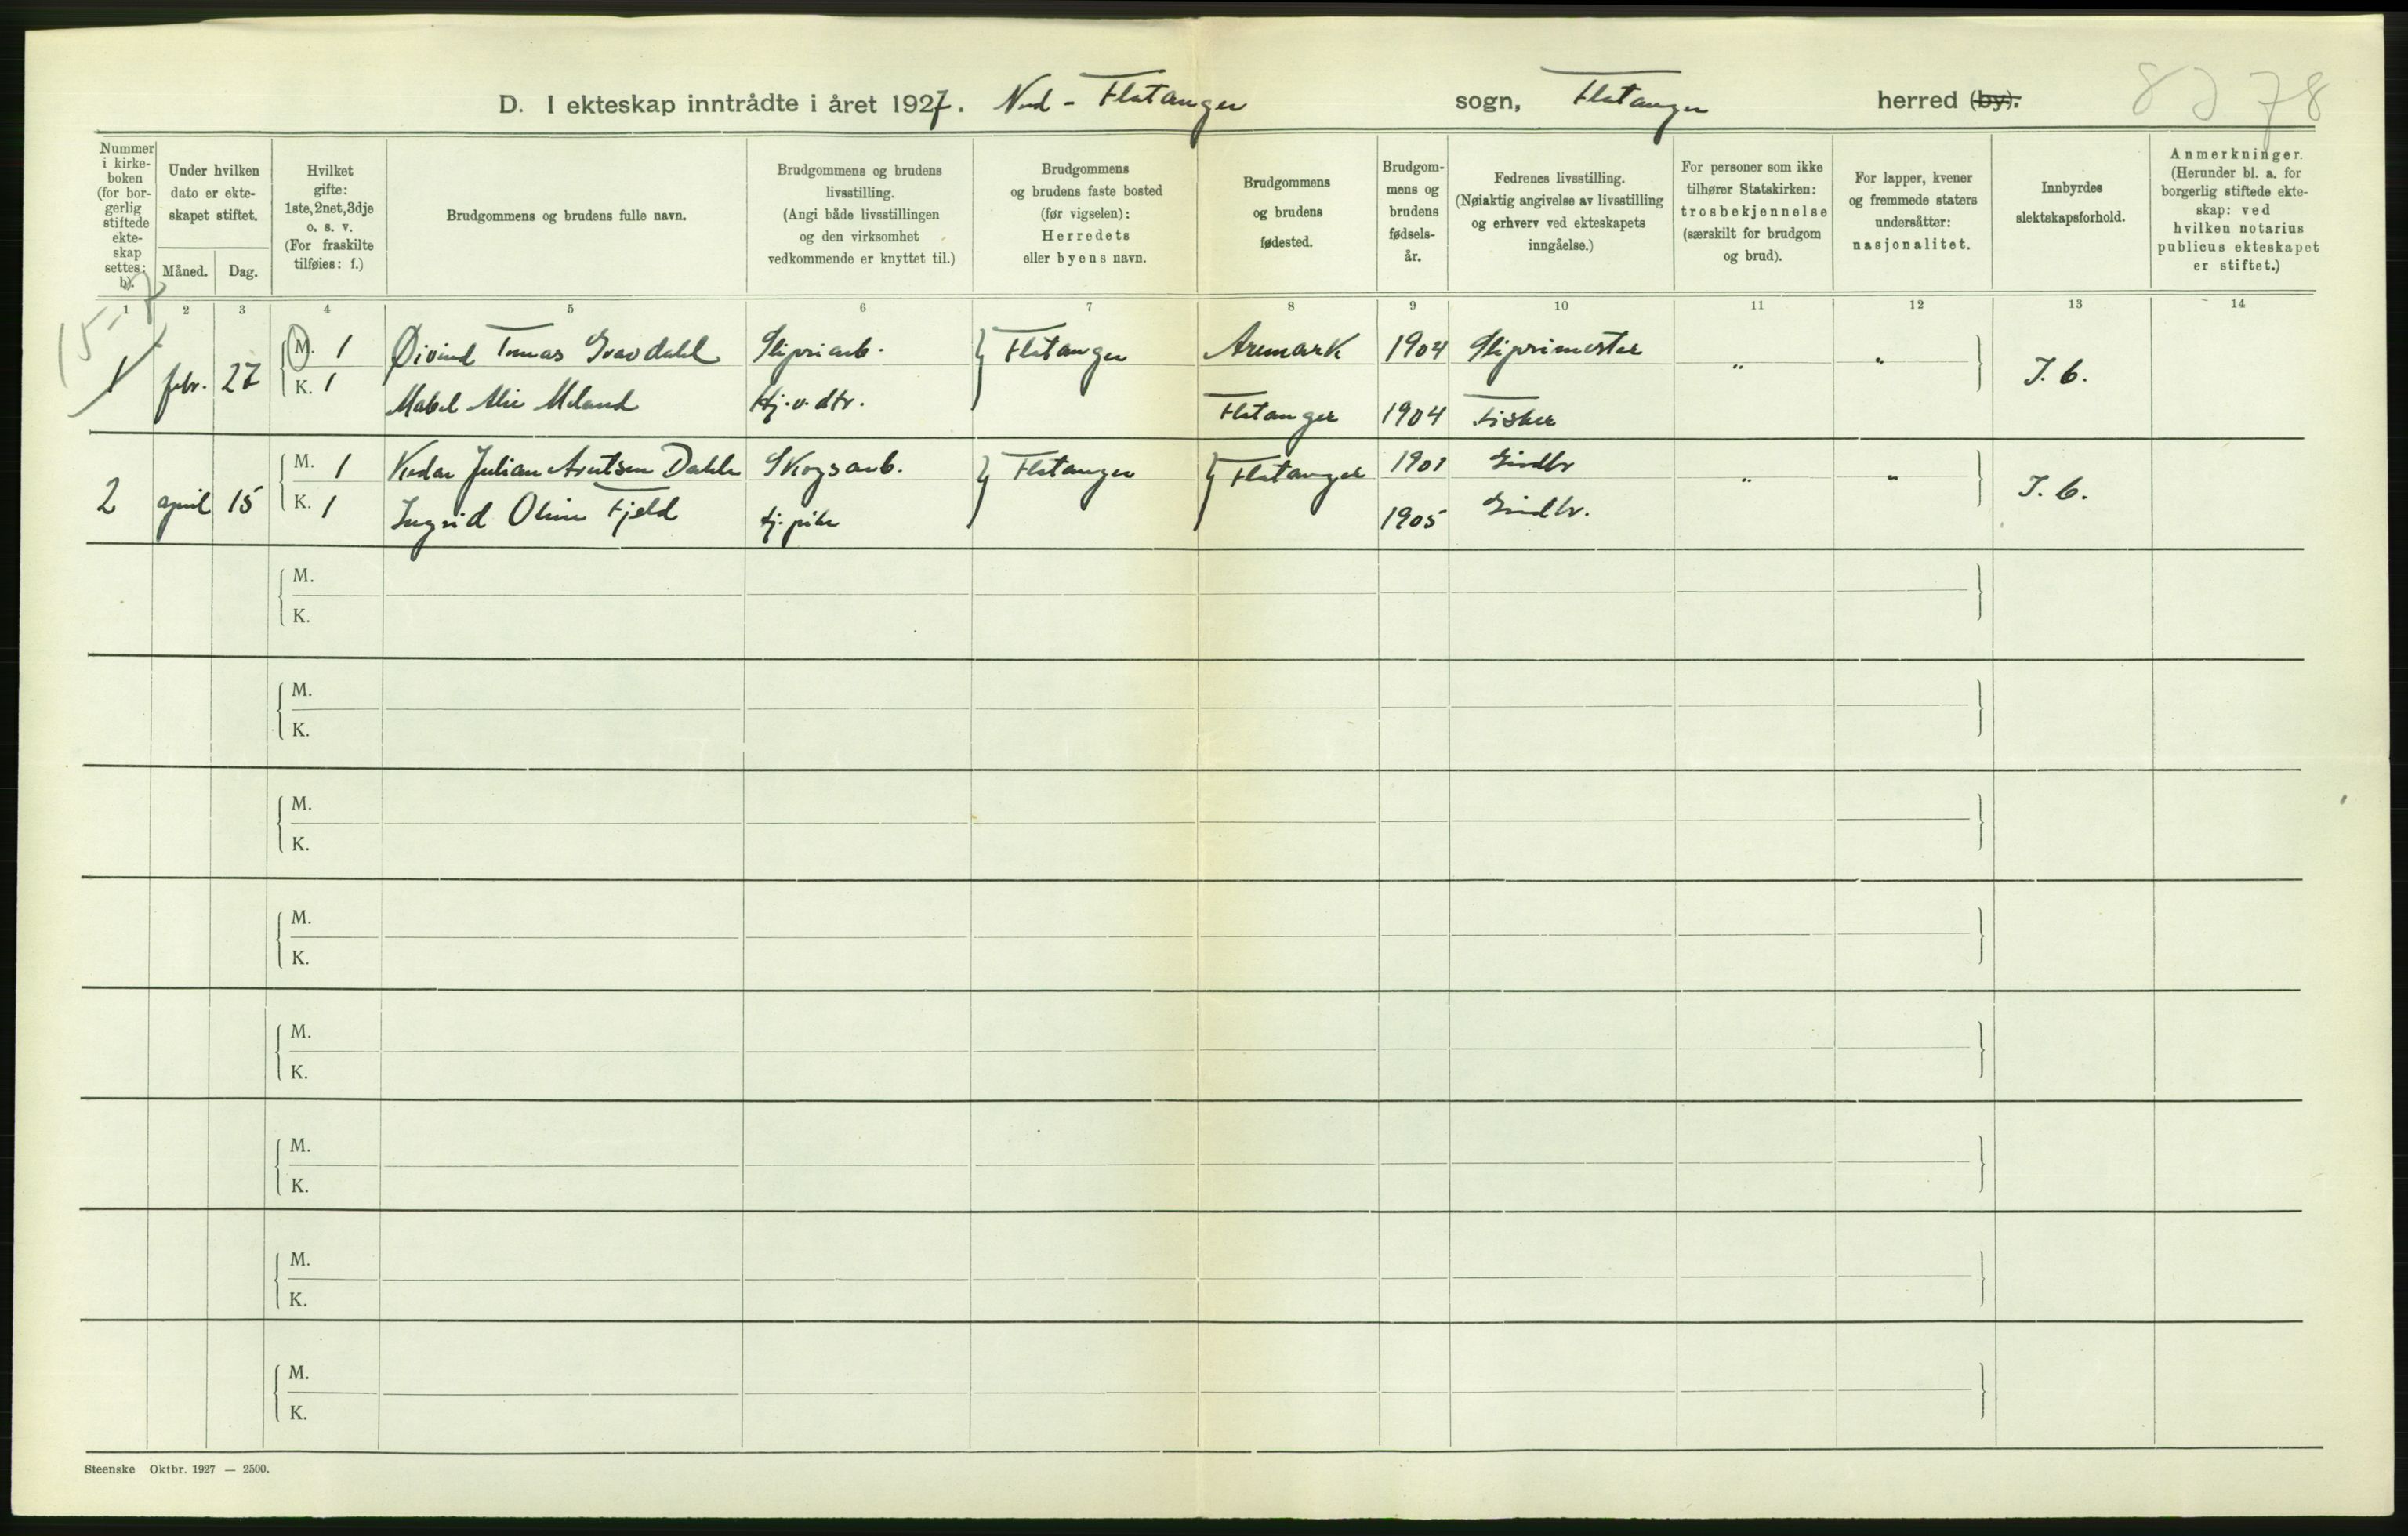 D. I ekteskap inntrådte i året 1927. Ned-Flatanger sogn, Flatanger herred (by).
78
Nummer i kirkeboken (for borgerlig stiftede ekteskap settes: b).
Under hvilken dato er ekteskapet stiftet.
Måned. Dag.
Hvilket gifte: 1ste, 2net, 3dje o. s. v. (For fraskilte tilføies: f.)
Brudgommens og brudens fulle navn.
Brudgommens og brudens livsstilling. (Angi både livsstillingen og den virksomhet vedkommende er knyttet til.)
Brudgommens og brudens faste bosted (før vigselen): Herredets eller byens navn.
Brudgommens og brudens fødested.
Brudgommens og brudens fødselsår.
Fedrenes livsstilling. (Nøiaktig angivelse av livsstilling og erhverv ved ekteskapets inngåelse.)
For personer som ikke tilhører Statskirken: trosbekjennelse (særskilt for brudgom og brud).
For lapper, kvener og fremmede staters undersåtter: nasjonalitet.
Innbyrdes slektskapsforhold.
Anmerkninger. (Herunder bl. a. for borgerlig stiftede ekteskap: ved hvilken notarius publicus ekteskapet er stiftet.)
1 2 3 4 5 6 7 8 9 10 11 12 13 14
15-7
1 febr. 27 M. 1 Øivind Tomas Gravdahl Sliperiarb. } Flatanger Aremark 1904 Sliperimester " " J. b.
K. 1 Mabel Meland Hj.v.dtr. Flatanger 1904 Fisker
2 april 15 M. 1 Julian Arntsen Dahle Skogsarb. } Flatanger } Flatanger 1901 Grdbr " " J. b.
K. 1 Ingrid Oline Fjeld tj.pike 1905 Grdbr.
M.
K.
M.
K.
M.
K.
M.
K.
M.
K.
M.
K.
M.
K.
M.
K.
Steenske Oktbr. 1927 — 2500.